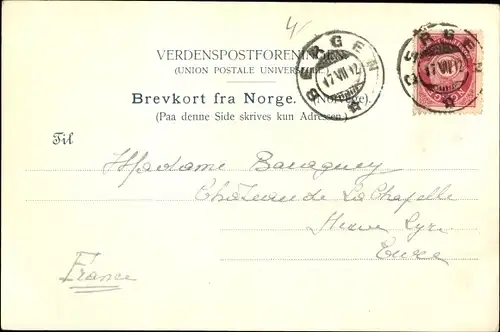 4
VERDENSPOSTFORENINGEN
(UNION POSTALE UNIVERSELLE)
BERGEN
17 VII 12
BERGEN
17 VII 12
Brevkort fra Norge. (Norvège).
(Paa denne Side skrives kun Adressen.)
Til
Madame
Château de La Chapelle
Lyre
Eure
France